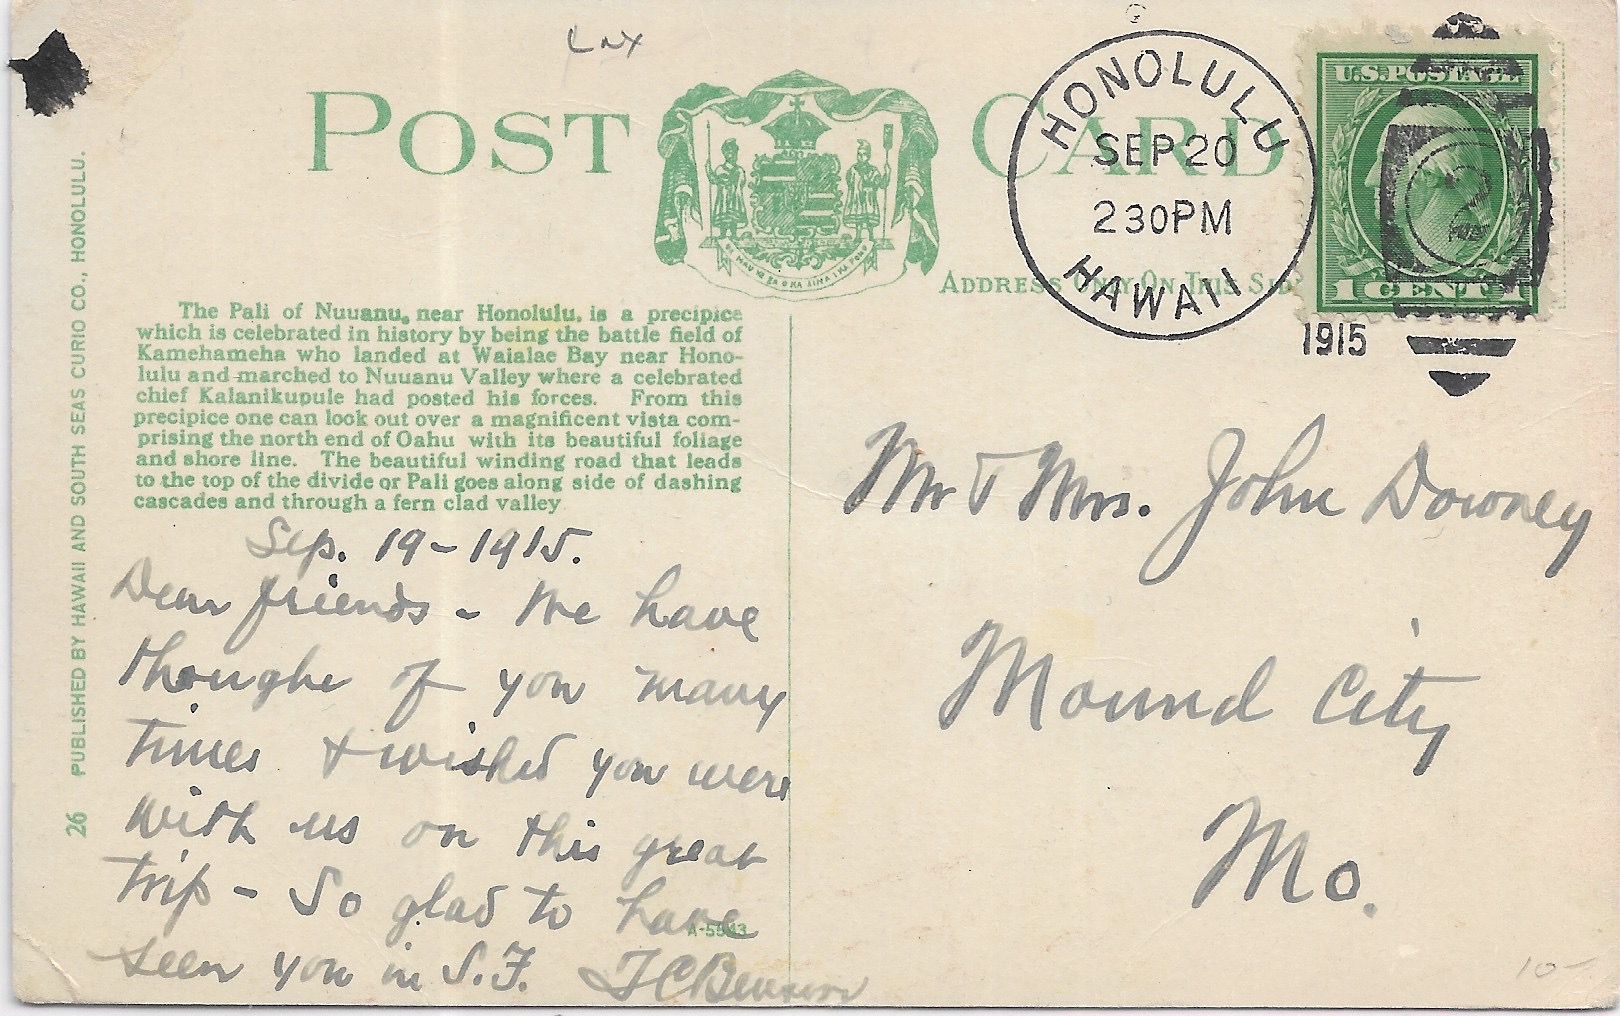 POST CARD
HONOLULU
SEP 20
2 30 PM
HAWAII
1915
U.S. POSTAGE
1 CENT 1
2
ADDRESS ONLY ON THIS SIDE
The Pali of Nuuanu, near Honolulu, is a precipice
which is celebrated in history by being the battle field of
Kamehameha who landed at Waialae Bay near Hono-
lulu and marched to Nuuanu Valley where a celebrated
chief Kalanikupule had posted his forces. From this
precipice one can look out over a magnificent vista com-
prising the north end of Oahu with its beautiful foliage
and shore line. The beautiful winding road that leads
to the top of the divide or Pali goes along side of dashing
cascades and through a fern clad valley
26 PUBLISHED BY HAWAII AND SOUTH SEAS CURIO CO., HONOLULU.
Sep. 19 - 1915.
Dear friends - We have
thought of you many
times & wished you were
with us on this great
trip - So glad to have
seen you in S.F.
A-5543
Mr & Mrs. John Downey
Mound City
Mo.
10-